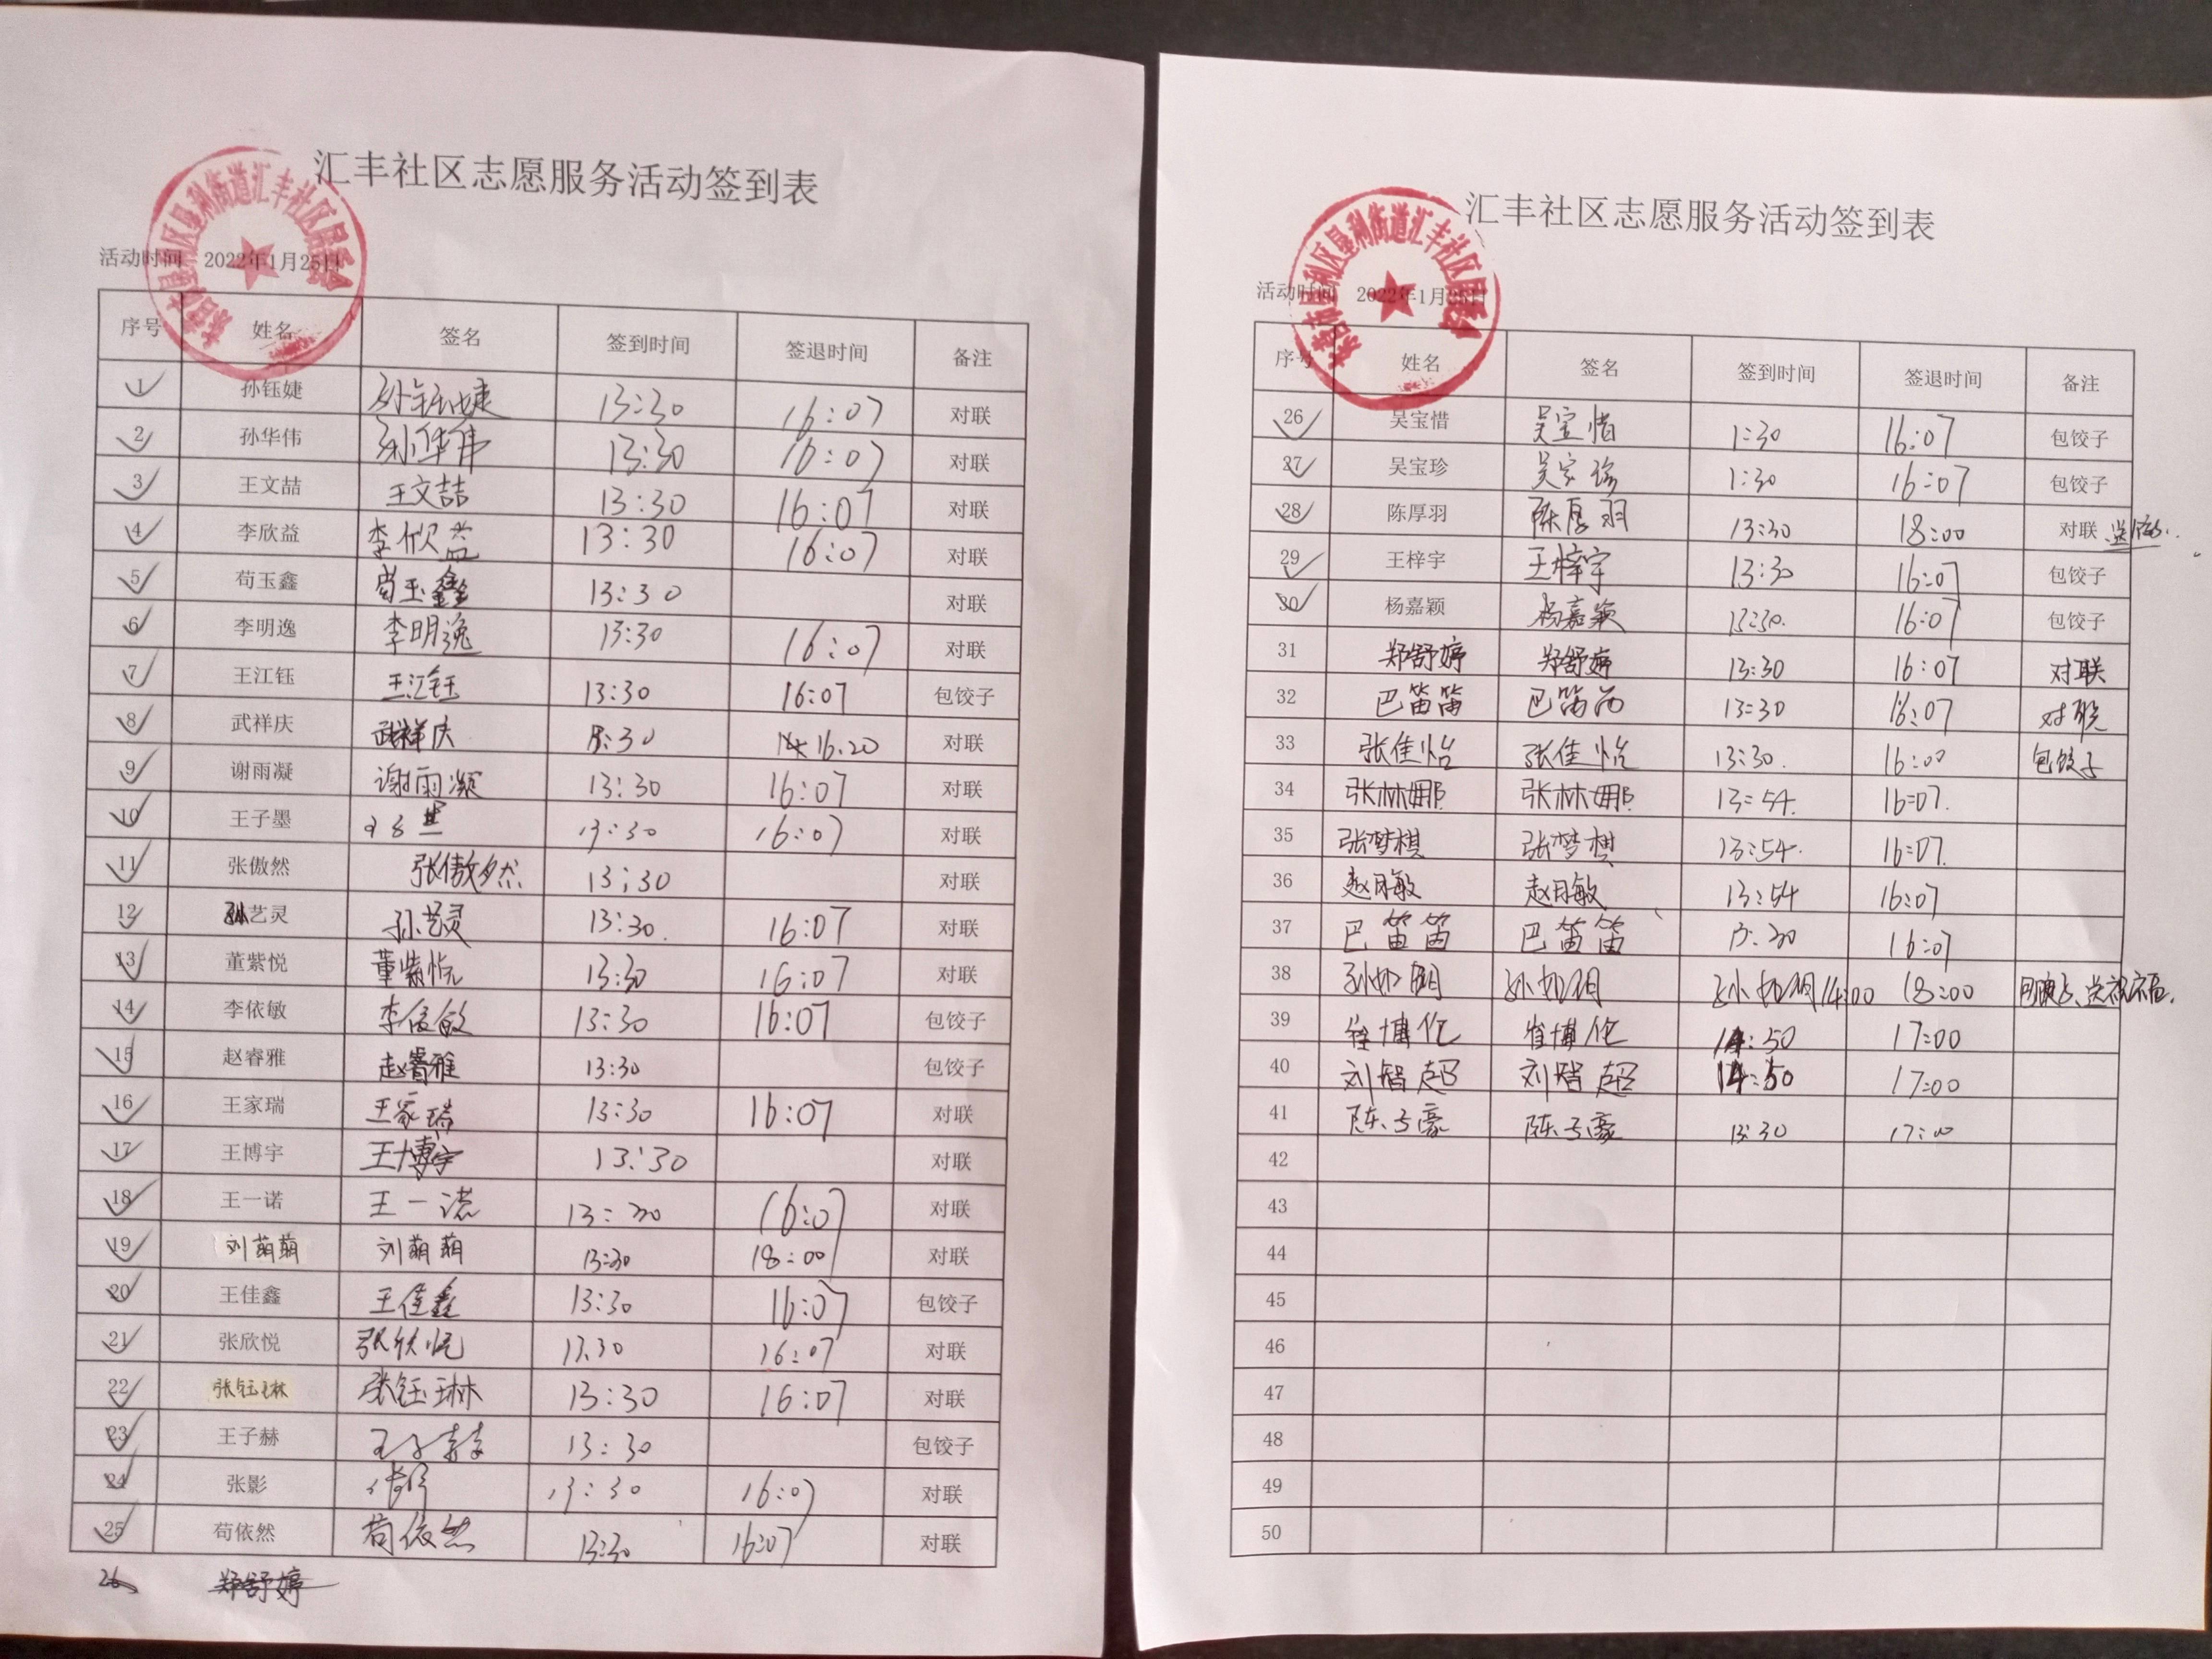 汇丰社区志愿服务活动签到表
活动时间 2022年1月25日
序号 姓名 签名 签到时间 签退时间 备注
1 孙钰婕 孙钰婕 13:30 16:07 对联
2 孙华伟 孙华伟 13:30 16:07 对联
3 王文喆 王文喆 13:30 16:07 对联
4 李欣益 李欣益 13:30 16:07 对联
5 苟玉鑫 苟玉鑫 13:30 对联
6 李明逸 李明逸 13:30 16:07 对联
7 王江钰 王江钰 13:30 16:07 包饺子
8 武祥庆 武祥庆 16.20 对联
9 谢雨凝 谢雨凝 13:30 16:07 对联
10 王子墨 13:30 16:07 对联
11 张傲然 张傲然 13:30 对联
12 孙艺灵 孙艺灵 13:30. 16:07 对联
13 董紫悦 董紫悦 13:30 16:07 对联
14 李依敏 李依敏 13:30 16:07 包饺子
15 赵睿雅 赵睿雅 13:30 包饺子
16 王家瑞 王家瑞 13:30 16:07 对联
17 王博宇 王博宇 13:30 对联
18 王一诺 王一诺 13:30 16:07 对联
19 刘萌萌 刘萌萌 13:30 18:00 对联
20 王佳鑫 王佳鑫 13:30 16:07 包饺子
21 张欣悦 张欣悦 13.30 16:07 对联
22 张钰琳 张钰琳 13:30 16:07 对联
23 王子赫 王子赫 13:30 包饺子
24 张影 13:30 16:07 对联
25 苟依然 苟依然 13:30 16:07 对联
26 郑舒婷
汇丰社区志愿服务活动签到表
活动时间 2022年1月25日
序号 姓名 签名 签到时间 签退时间 备注
26 吴宝惜 吴宝惜 1:30 16:07 包饺子
27 吴宝珍 吴宝珍 1:30 16:07 包饺子
28 陈厚羽 陈厚羽 13:30 18:00 对联
29 王梓宇 王梓宇 13:30 16:07 包饺子
30 杨嘉颖 杨嘉颖 13:30. 16:07 包饺子
31 郑舒婷 郑舒婷 13:30 16:07 对联
32 巴笛笛 巴笛笛 13:30 16:07 对联
33 张佳怡 张佳怡 13:30. 16:00 包饺子
34 张林娜 张林娜 13:54. 16:07.
35 张梦棋 张梦棋 13:54. 16:07.
36 赵月敏 赵月敏 13:54 16:07
37 巴笛笛 巴笛笛 13:30 16:07
38 14:00 18:00
39 崔博伦 崔博伦 14:50 17:00
40 刘智超 刘智超 14:50 17:00
41 陈子豪 陈子豪 13:30 17:00
42
43
44
45
46
47
48
49
50